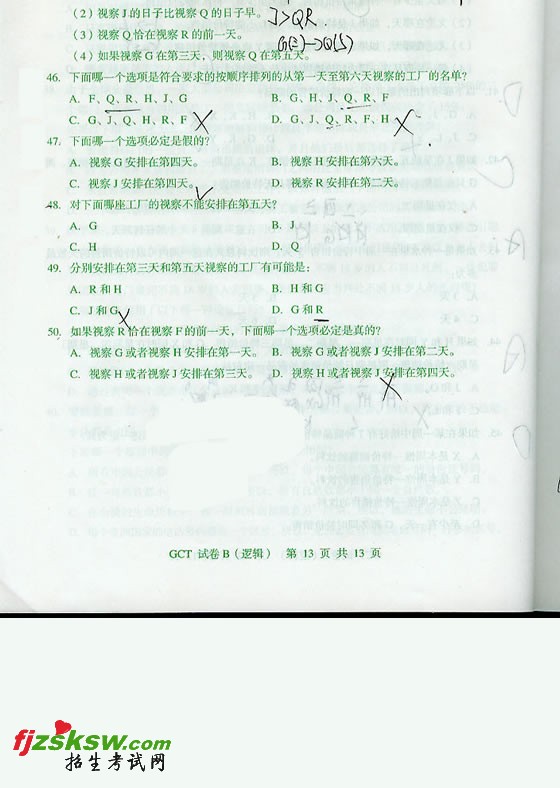 （2）视察 J 的日子比视察 Q 的日子早。 J>QR
（3）视察 Q 恰在视察 R 的前一天。
（4）如果视察 G 在第三天，则视察 Q 在第五天。 G(3)→Q(5)
46. 下面哪一个选项是符合要求的按顺序排列的从第一天至第六天视察的工厂的名单？
A. F、Q、R、H、J、G B. G、H、J、Q、R、F
C. G、J、Q、H、R、F D. G、J、Q、R、F、H
47. 下面哪一个选项必定是假的？
A. 视察 G 安排在第四天。 B. 视察 H 安排在第六天。
C. 视察 J 安排在第四天。 D. 视察 R 安排在第二天。
48. 对下面哪座工厂的视察不能安排在第五天？
A. G B. J
C. H D. Q
49. 分别安排在第三天和第五天视察的工厂有可能是：
A. R 和 H B. H 和 G
C. J 和 G D. G 和 R
50. 如果视察 R 恰在视察 F 的前一天，下面哪一个选项必定是真的？
A. 视察 G 或者视察 H 安排在第一天。 B. 视察 G 或者视察 J 安排在第二天。
C. 视察 H 或者视察 J 安排在第三天。 D. 视察 H 或者视察 J 安排在第四天。
GCT 试卷 B（逻辑） 第 13 页 共 13 页
fjzsksw.com
招生考试网